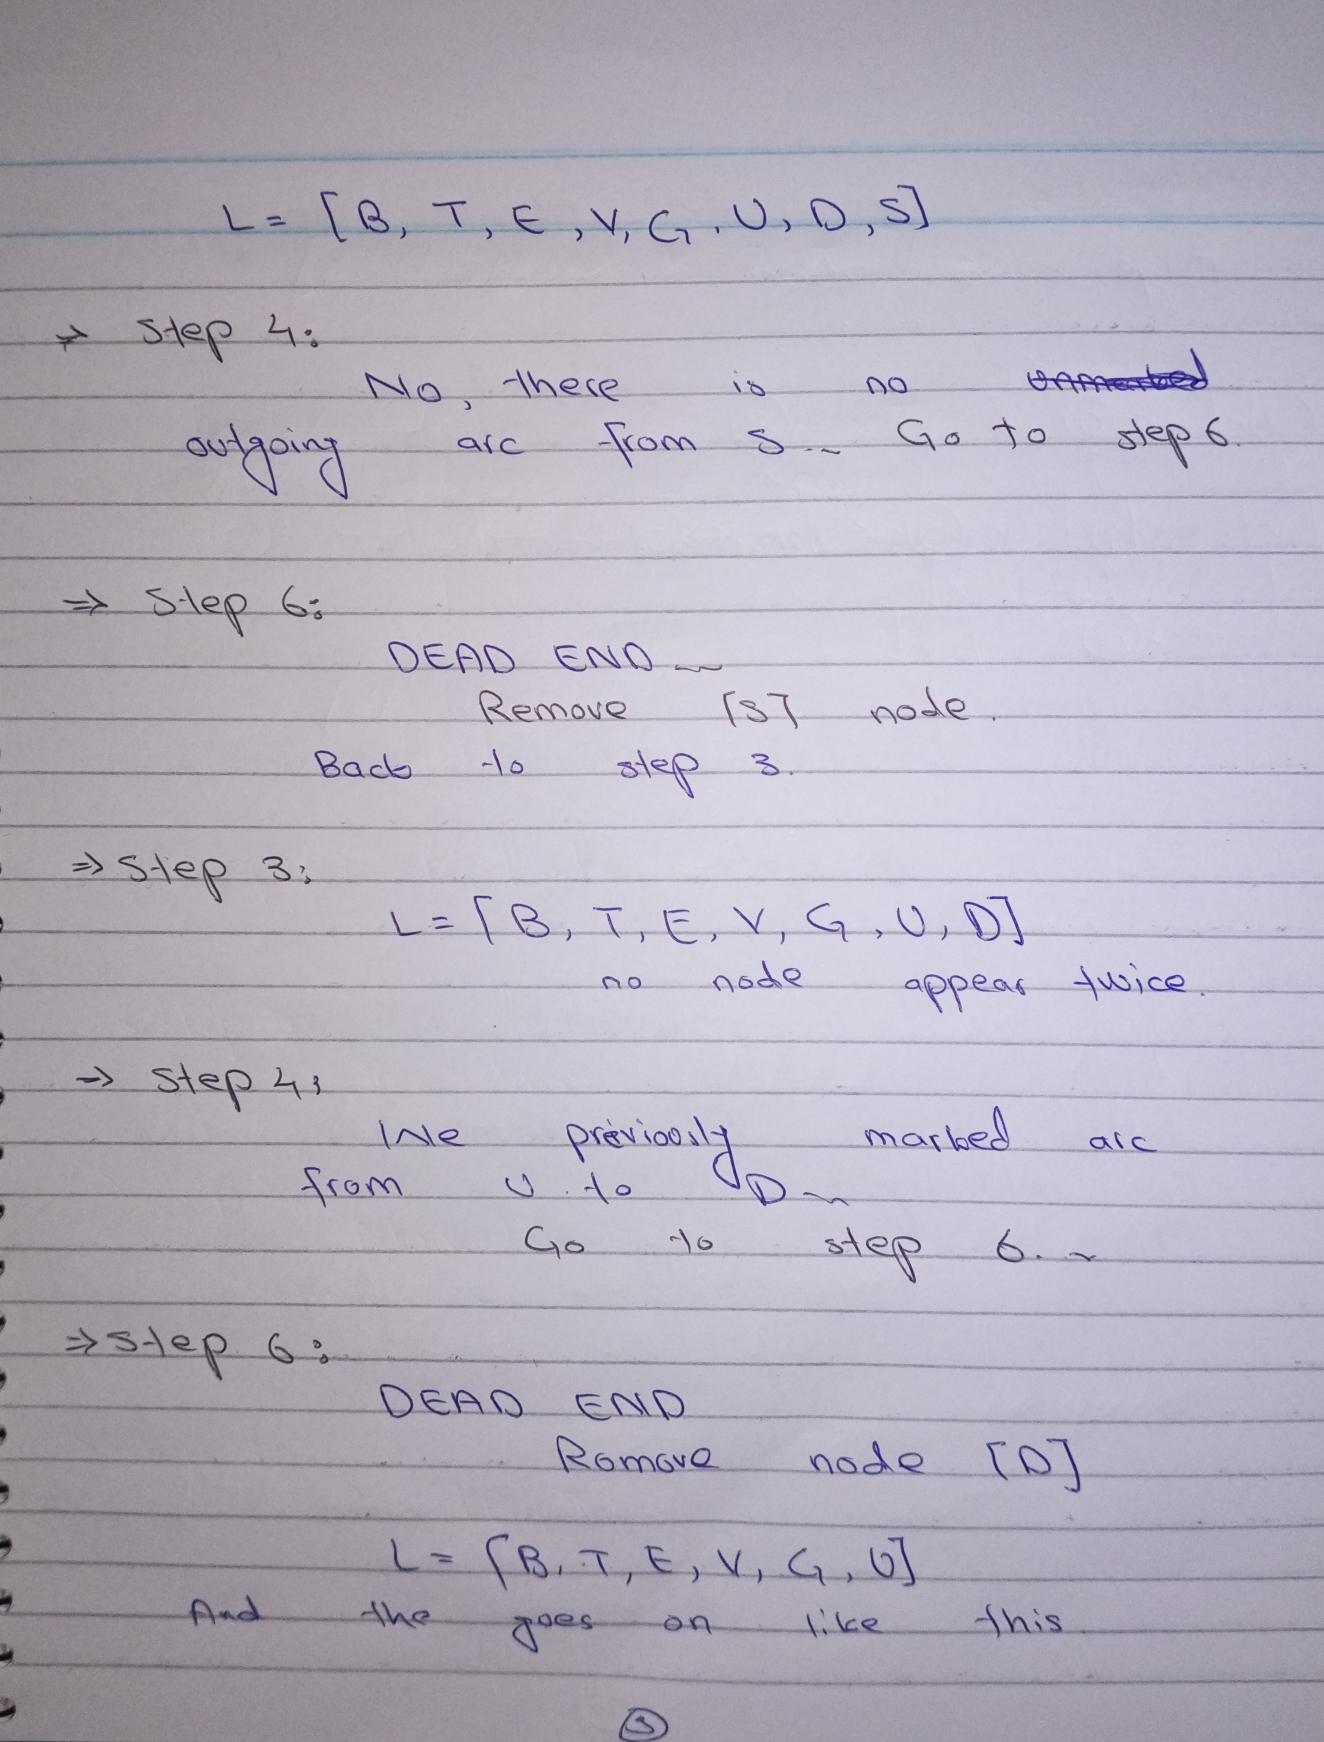 L = [B, T, E, V, G, U, D, S]
→ Step 4:
No, there is no
outgoing arc from S.. Go to step 6.
⇒ Step 6:
DEAD END
Remove [S] node.
Back to step 3.
⇒ Step 3:
L = [B, T, E, V, G, U, D]
no node appear twice.
⇒ Step 4:
We previously marked arc
from U to D
Go to step 6.
⇒ Step 6:
DEAD END
Romove node [D]
L = [B, T, E, V, G, U]
And the goes on like this